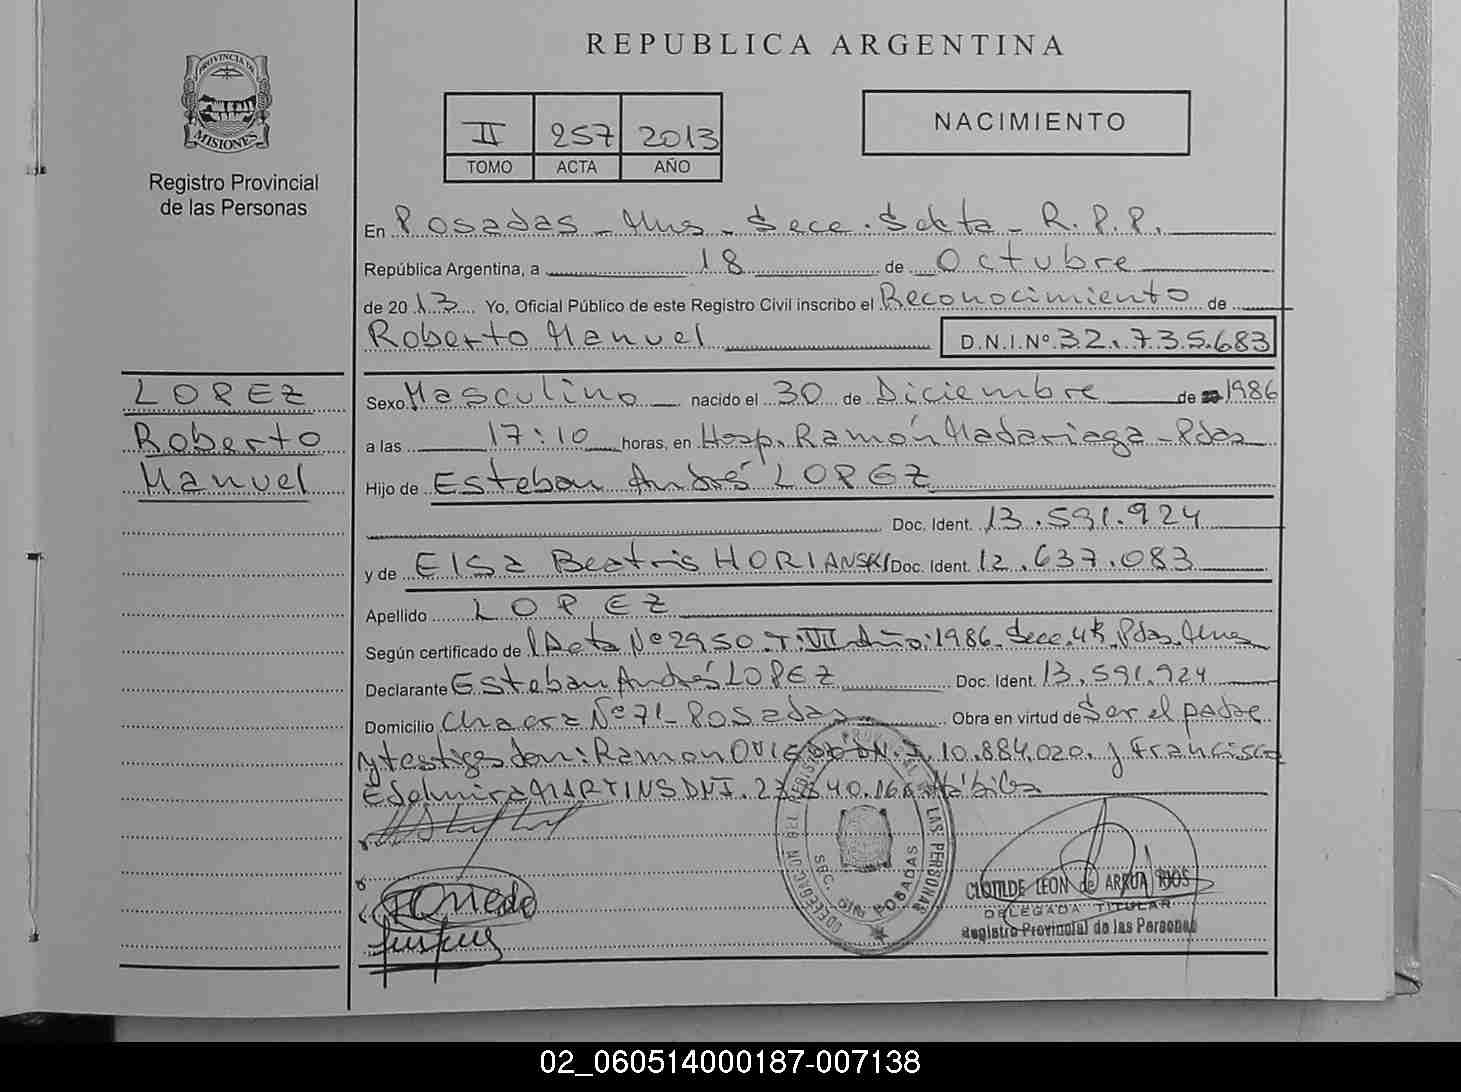 REPUBLICA ARGENTINA
PROVINCIA DE
MISIONES
Registro Provincial
de las Personas
II 257 2013
TOMO ACTA AÑO
NACIMIENTO
En Posadas - Mnes - Secc. Sexta - R.P.P.
República Argentina, a 18 de Octubre
de 2013 Yo, Oficial Público de este Registro Civil inscribo el Reconocimiento de
Roberto Manuel D.N.I.Nº 32.735.683
LOPEZ
Roberto
Manuel
Sexo Masculino nacido el 30 de Diciembre de 1986
a las 17:10 horas, en Hosp. Ramón Madariaga - Pdas
Hijo de Esteban Andrés LOPEZ
Doc. Ident. 13.591.924
y de Elsa Beatris HORIANSKI Doc. Ident. 12.637.083
Apellido LOPEZ
Según certificado de Acta Nº 2950 T: VII Año: 1986 Secc. 4ta Pdas. Mnes
Declarante Esteban Andrés LOPEZ Doc. Ident. 13.591.924
Domicilio Chacra Nº 71 - Posadas Obra en virtud de Ser el padre
y testigos don: Ramon OVIEDO D.N.I. 10.884.020 y Francisca
Edelmira MARTINS DNI. Hábiles
DELEGACION DEL REGISTRO PROVINCIAL DE LAS PERSONAS
SEC. 6ta POSADAS
CLOTILDE LEON de ARRUA RIOS
DELEGADA TITULAR
Registro Provincial de las Personas
02_060514000187-007138